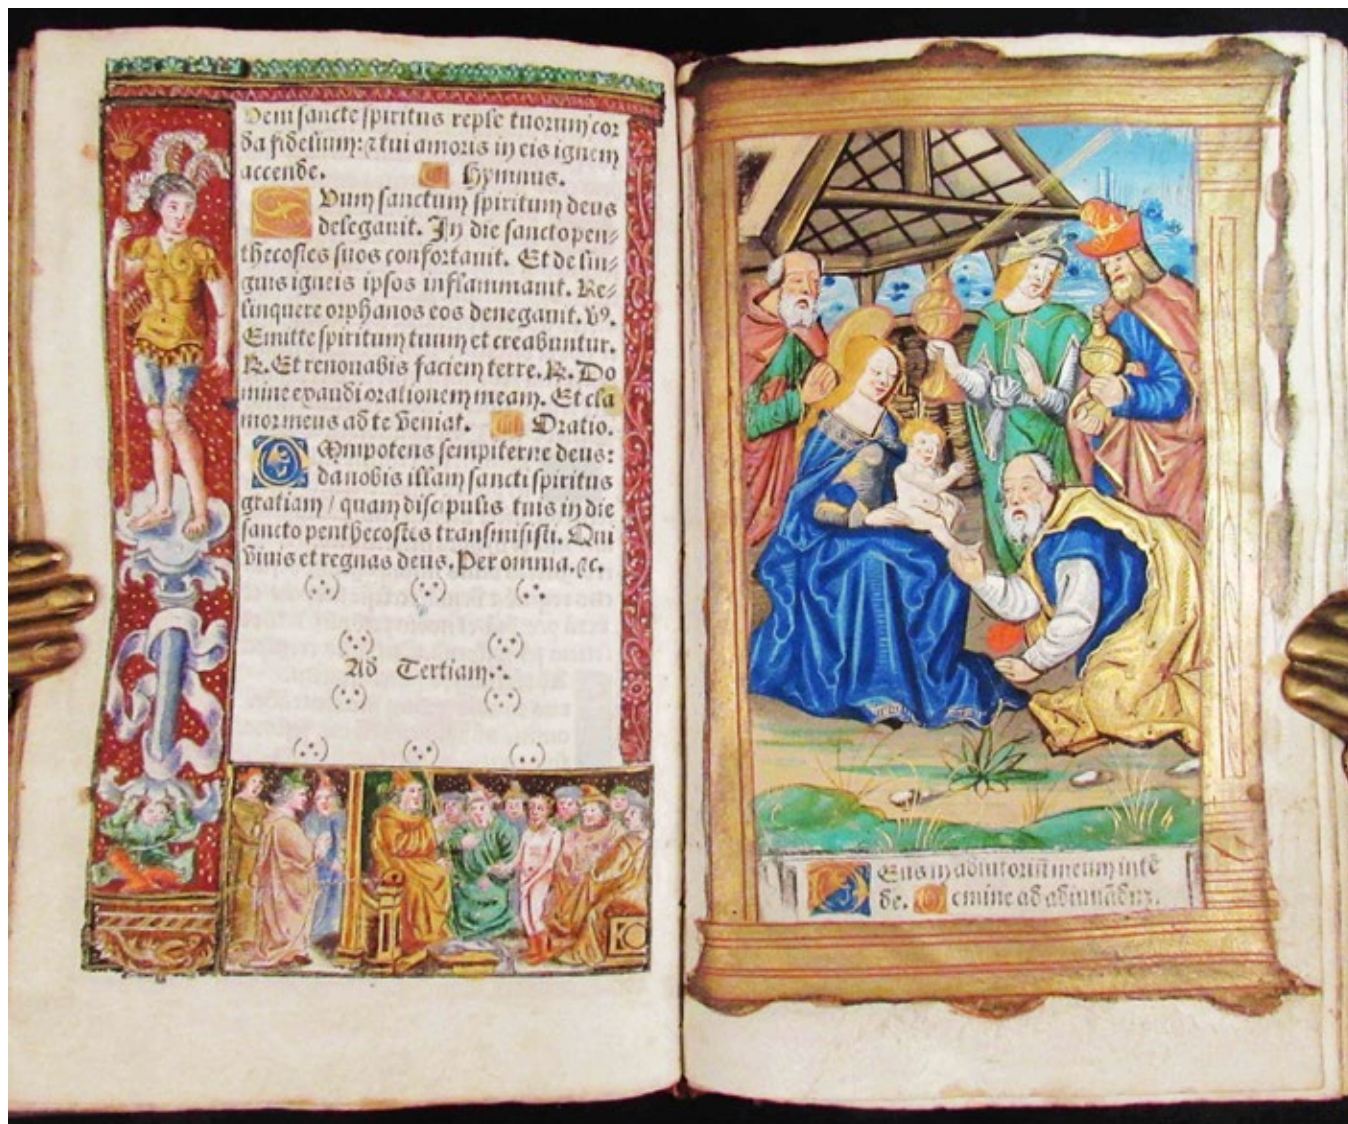 Veni sancte spiritus reple tuorum cor
da fidelium: ⁊ tui amoris in eis ignem
accende. Hymnus.
Dum sanctum spiritum deus
delegauit. In die sancto pen⸗
thecostes suos confortauit. Et de lin⸗
guis igneis ipsos inflammauit. Re⸗
linquere orphanos eos denegauit. v9.
Emitte spiritum tuum et creabuntur.
R. Et renouabis faciem terre. R. Do
mine exaudi orationem meam. Et cla
mor meus ad te veniat. Oratio.
Omnipotens sempiterne deus:
da nobis illam sancti spiritus
gratiam / quam discipulis tuis in die
sancto penthecostes transmisisti. Qui
viuis et regnas deus. Per omnia. ⁊c.
Ad Tertiam.
Deus in adiutoriũ meum intẽ
de. Domine ad adiuuãdũ.